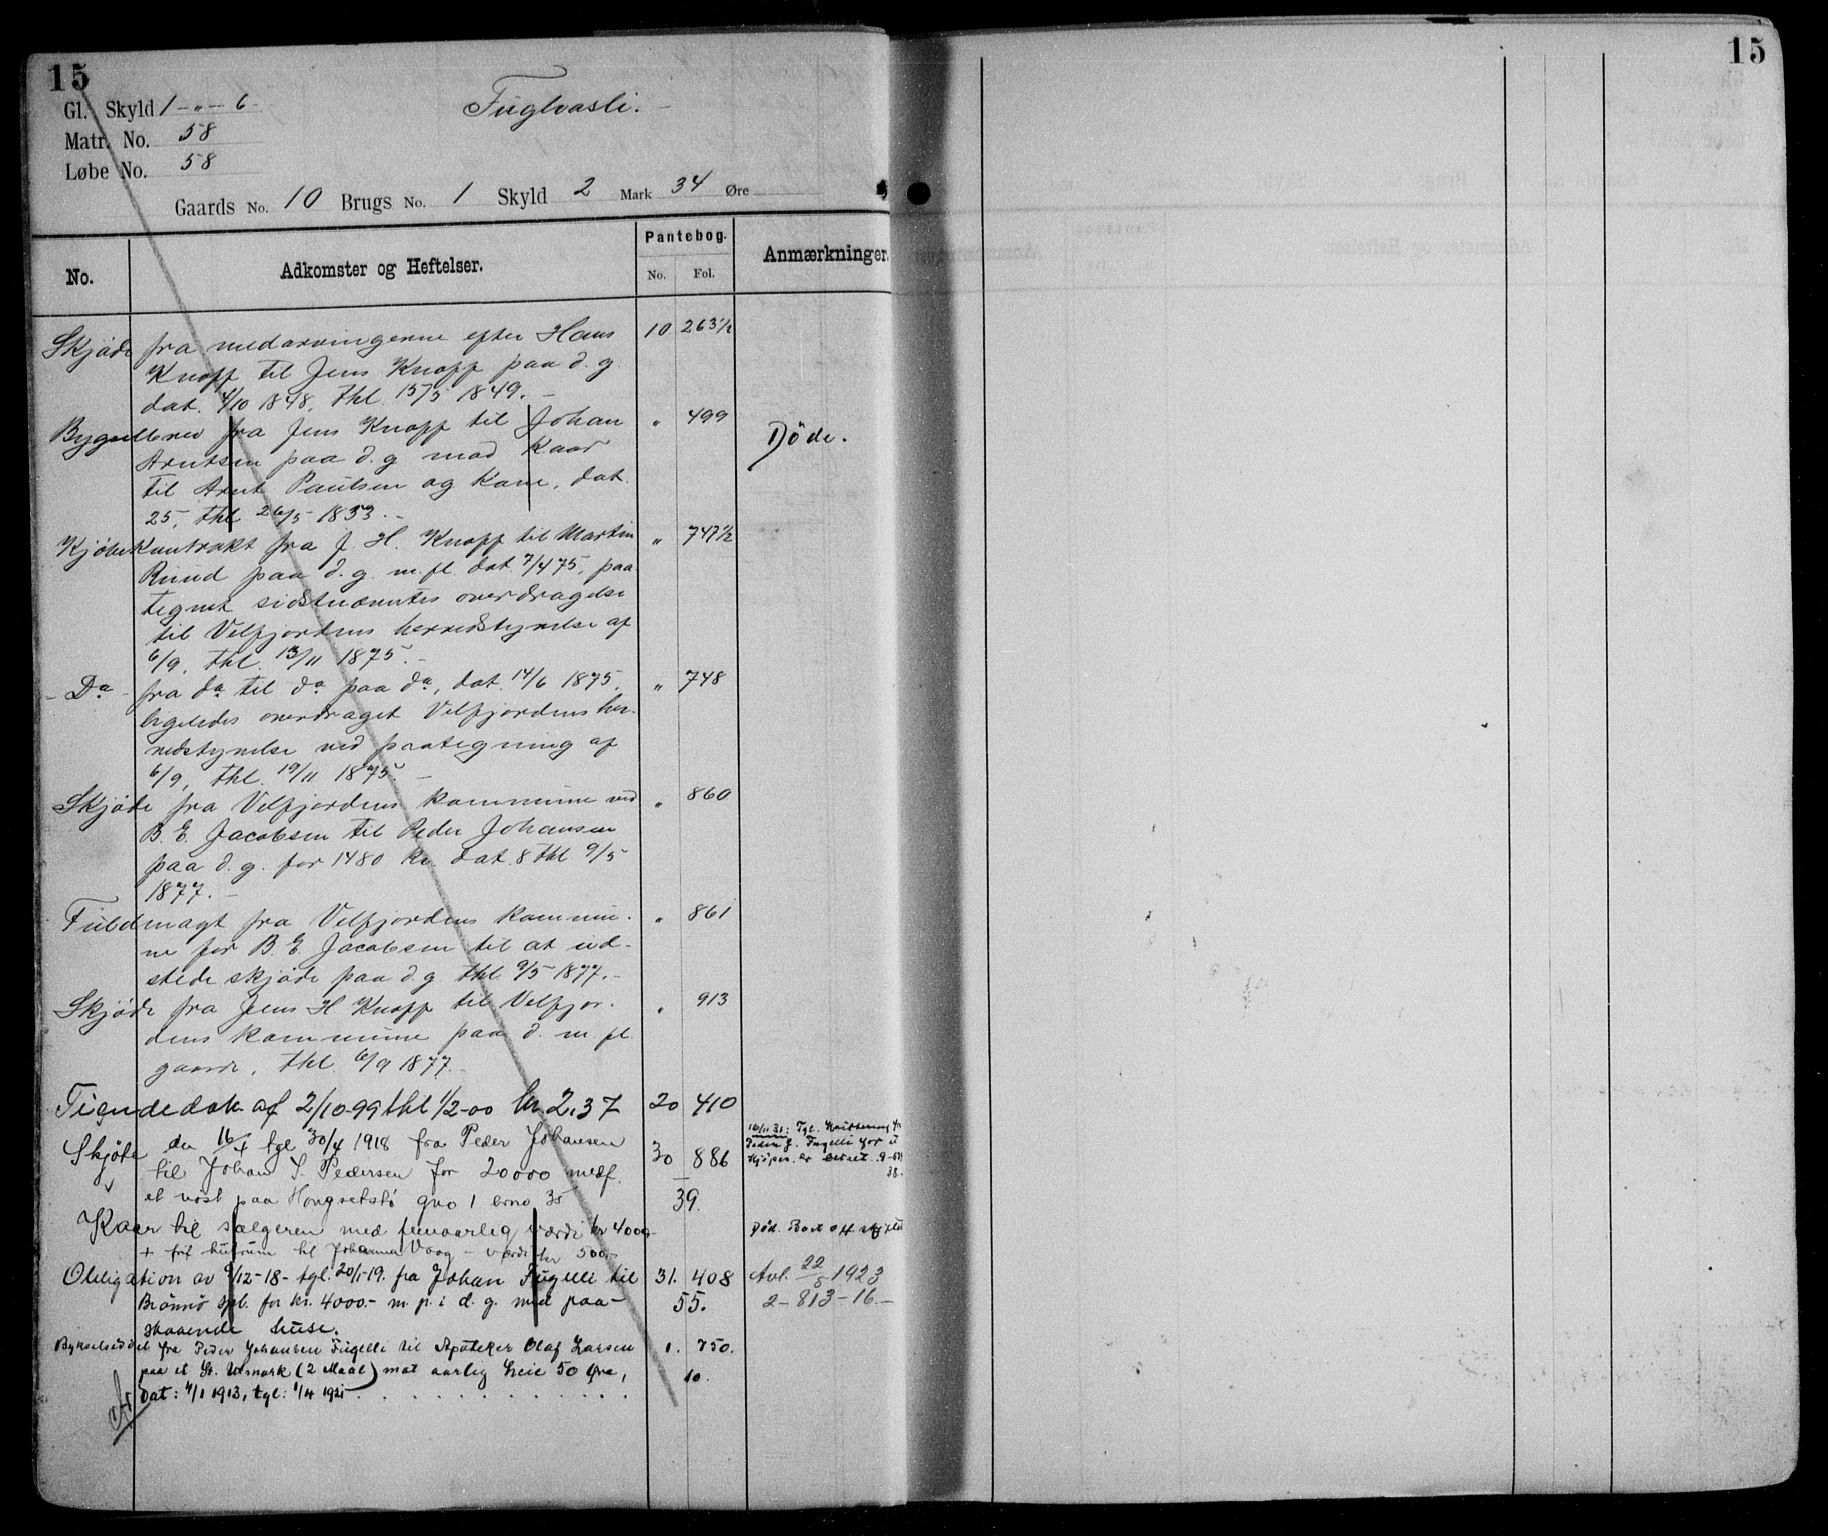 15
Gl. Skyld 1 - „ - 6 -
Fuglvasli. -
Matr. No. 58
Løbe No. 58
Gaards No. 10 Brugs No. 1 Skyld 2 Mark 34 Øre
No. Adkomster og Heftelser. Pantebog. No. Fol. Anmærkninger.
Skjøde fra medarvingerne efter Hans 10 263½
Knoff til Jens Knoff paa d. g.
dat. 4/10 1848, thl. 15/5 1849. -
Bygselbrev fra Jens Knoff til Johan „ 499
Arntsen paa d. g. mod Kaar Døde.
til Arnt Paulsen og Kone, dat.
25, thl. 26/5 1853. -
Kjøbekontrakt fra J. H. Knoff til Martin „ 747½
Ruud paa d. g. m. fl. dat. 7/4 75, paa
tegnet sidstnævntes overdragelse
til Velfjordens herredstyrelse af
6/9, thl. 13/11 1875. -
- Da - fra da til da paa da, dat. 14/6 1875, „ 748
ligeledes overdraget Velfjordens her-
redstyrelse ved paategning af
6/9, thl. 19/11 1875. -
Skjøde fra Velfjordens kommune ved „ 860
B. E. Jacobsen til Peder Johansen
paa d. g. for 1480 kr. dat. 8 thl 9/5
1877. -
Fuldmagt fra Velfjordens kommu- „ 861
ne for B. E. Jacobsen til at ud-
stede skjøde paa d. g. thl. 9/5 1877. -
Skjøde fra Jens H Knoff til Velfjor- „ 913
dens kommune paa d. m fl.
gaarde, thl. 6/9 1877. -
Tiendedok. af 2/10-99 thl ½-00 kr. 2.37 20 410
Skjøte du 16/4 tgl 30/4 1918 fra Peder Johansen 30 886
til Johan S. Pedersen for 20000 med f.
et nøst paa Hongsetstø gno 1 brno 35 39.
16/11 31: Tgl. Kvittering fra
Peder J. Fugelli for at
Kjøpes. er betalt. 9-
38.
Kaar til sælgeren med femaarlig værdi kr 4000 Død.
+ frit husrum til Johanna Vaag - værdi kr 500
Obligation av 9/12-18- tgl. 20/1-19. fra Johan Fugelli til 31. 408 Avl. 22/5 1923
Brønnø spb. for kr. 4000.- m. p. i d. g. med paa- 55. 2 - 813 - 16. -
staaende huse.
Bykselseddel fra Peder Johansen Fugelli til Apoteker Olaf Larsen 1. 750.
paa et St. Utmark (2 Maal) mot aarlig Leie 50 Øre, 10.
Dat: 4/1 1913, tgl: 1/4 1921 . . . . . . . .
15